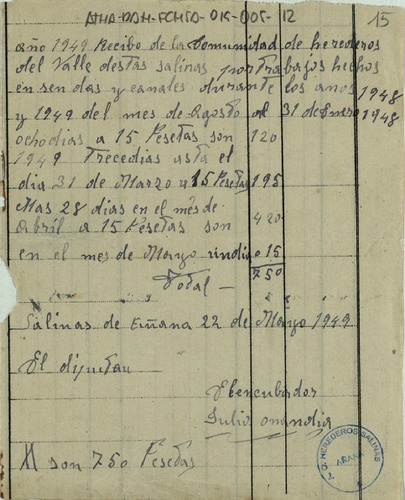 ATHA-DAH-FCHSA-015-005-12
15
año 1949 Recibo de la Comunidad de herederos
del Valle destas salinas, por trabajos hechos
en sendas y canales durante los anos 1948
y 1949 del mes de Agosto al 31 de Enero 1948
ocho dias a 15 Pesetas son 120
1949 Trece dias asta el
dia 31 de Marzo a 15 Pesetas 195
Mas 28 dias en el més de
abril a 15 Pesetas son 420
en el mes de Mayo un dia 0 15
Total — 750
Salinas de Añana 22 de Mayo 1949
El diputau
El encubador
Julio onandia
son 750 Pesetas
HEREDEROS SALINAS
AÑANA